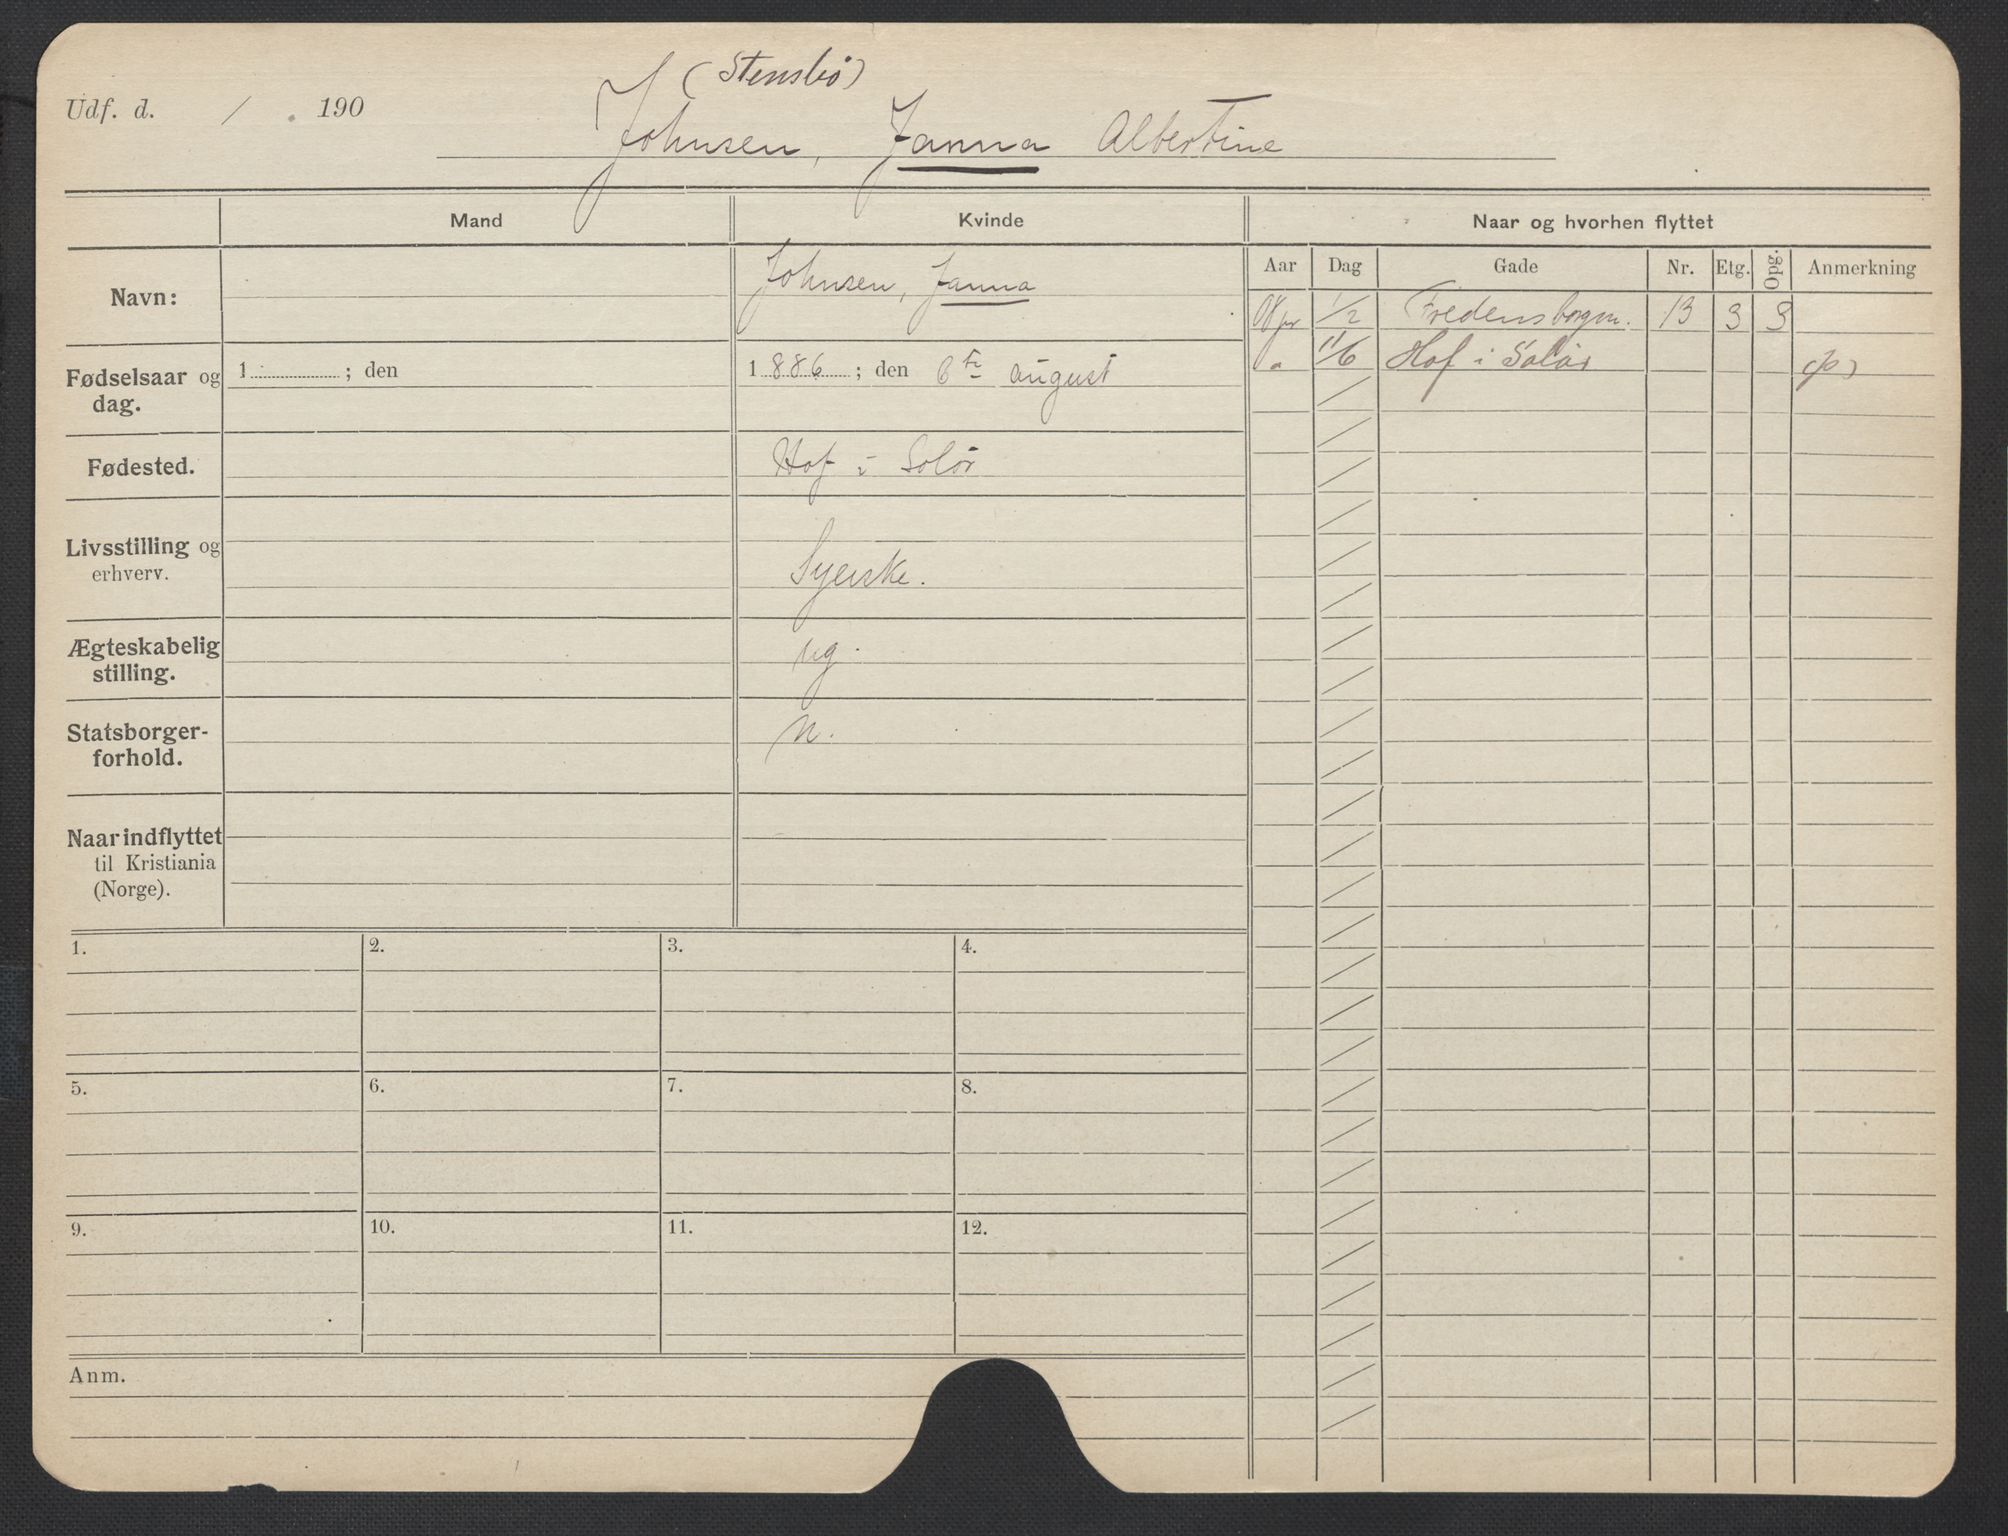 (Stensbö)
Udf. d. / . 190
Johnsen, Janna Albertine
Mand Kvinde Naar og hvorhen flyttet
Aar Dag Gade Nr. Etg. Opg. Anmerkning
Navn: Johnsen, Janna
08 1/2 Fredensborgvn. 13 3 3
11/6 Hof i Solör
Fødselsaar og dag. 1 ; den 1886 ; den 6te august
Fødested. Hof i Solör
Livsstilling og erhverv. Syerske.
Ægteskabelig stilling. ug.
Statsborger-forhold. n.
Naar indflyttet til Kristiania (Norge).
1. 2. 3. 4.
5. 6. 7. 8.
9. 10. 11. 12.
Anm.